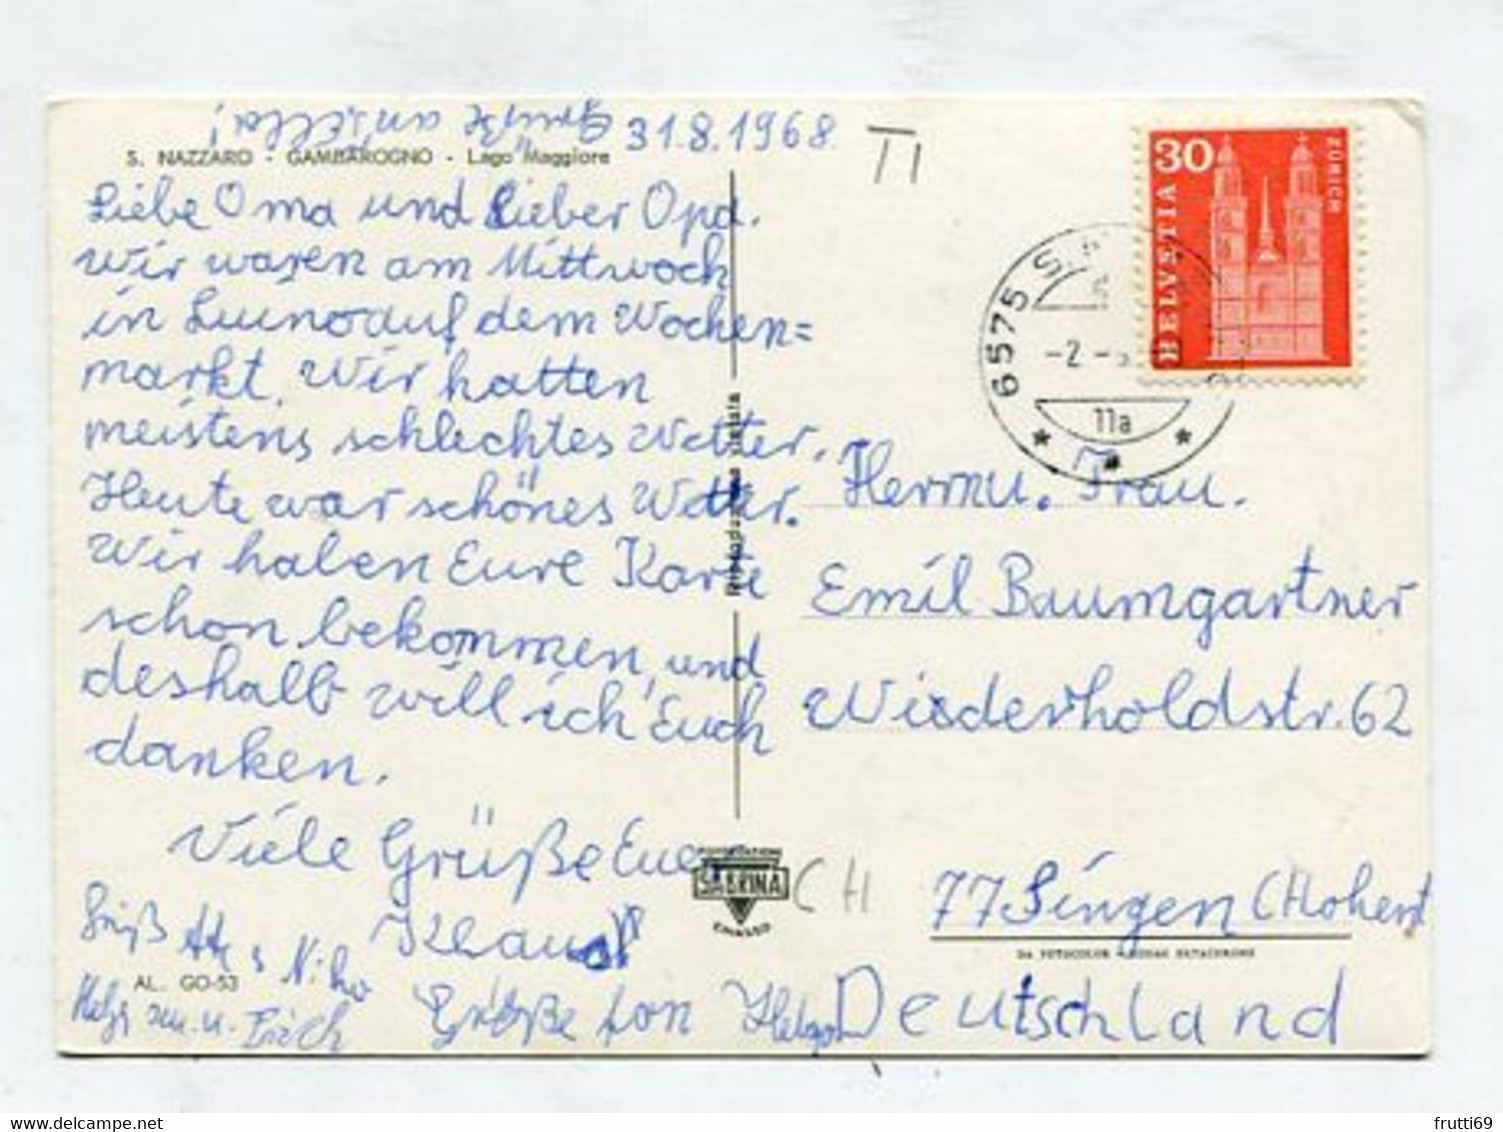 Grüße an Ella!
31.8.1968
TI
S. NAZZARO - GAMBAROGNO - Lago Maggiore
Liebe Oma und Lieber Opa.
Wir waren am Mittwoch
in Luino auf dem Wochen=
markt. Wir hatten
meistens schlechtes Wetter.
Heute war schönes Wetter.
Wir haben Eure Karte
schon bekommen, und
deshalb will ich Euch
danken.
Viele Grüße Euer
Klaus
Gruß
Helga u. Erich
Grüße von Helga
AL. GO-53
Riproduzione vietata
SABRINA
CHIASSO
CH
30
HELVETIA
ZÜRICH
6575 S.
-2.-
11a
Herrn u. Frau.
Emil Baumgartner
Wiederholdstr. 62
77 Singen (Hohent
DA FOTOCOLOR - KODAK EKTACHROME
Deutschland
frutti69